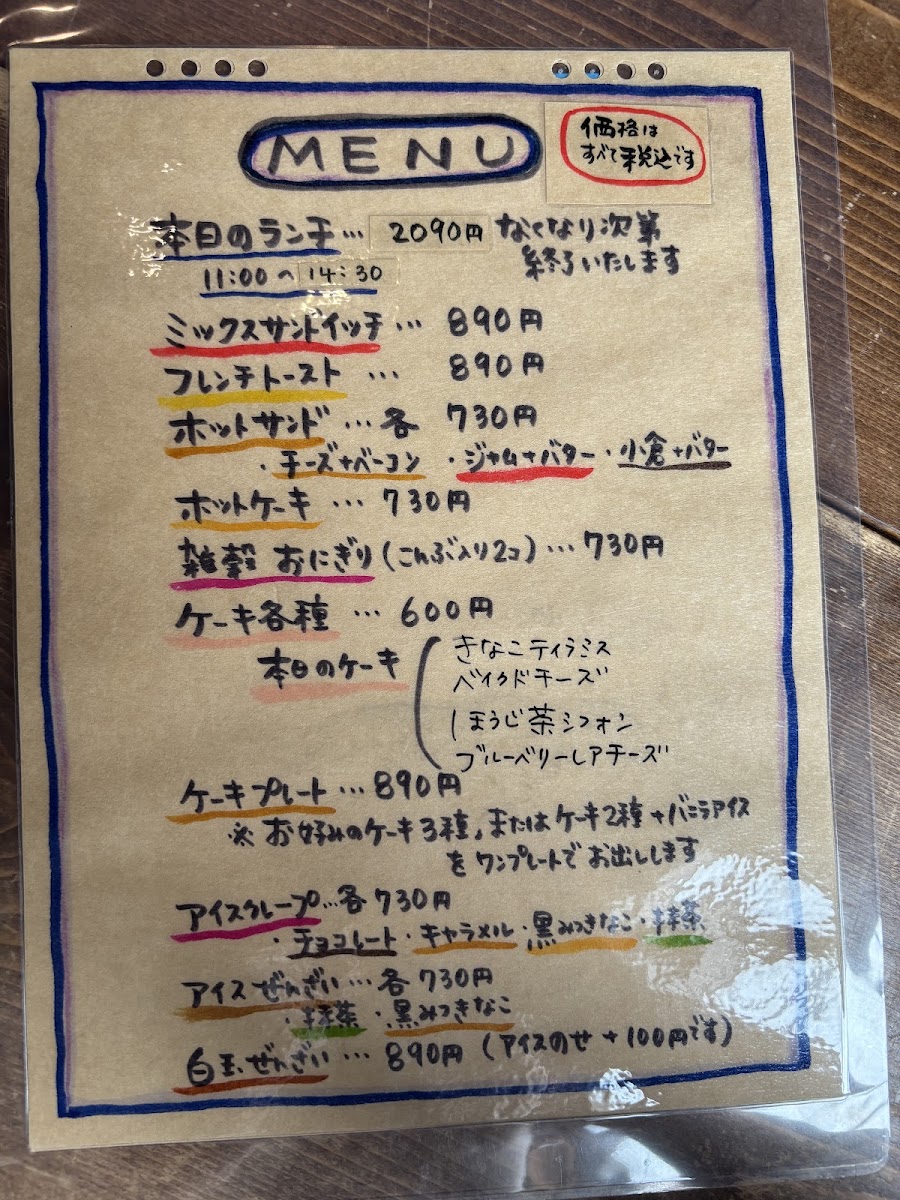 MENU
価格は
すべて税込です
本日のランチ… 2090円 なくなり次第
終了いたします
11:00〜14:30
ミックスサンドイッチ… 890円
フレンチトースト … 890円
ホットサンド …各 730円
・チーズ+ベーコン ・ジャム+バター・小倉+バター
ホットケーキ …730円
雑穀 おにぎり(こんぶ入り2コ)…730円
ケーキ各種 … 600円
本日のケーキ
きなこティラミス
ベイクドチーズ
ほうじ茶シフォン
ブルーベリーレアチーズ
ケーキプレート…890円
※ お好みのケーキ3種、またはケーキ2種+バニラアイス
をワンプレートでお出しします
アイスクレープ…各730円
・チョコレート・キャラメル・黒みつきなこ・抹茶
アイスぜんざい…各730円
・抹茶 ・黒みつきなこ
白玉ぜんざい… 890円 (アイスのせ +100円です)